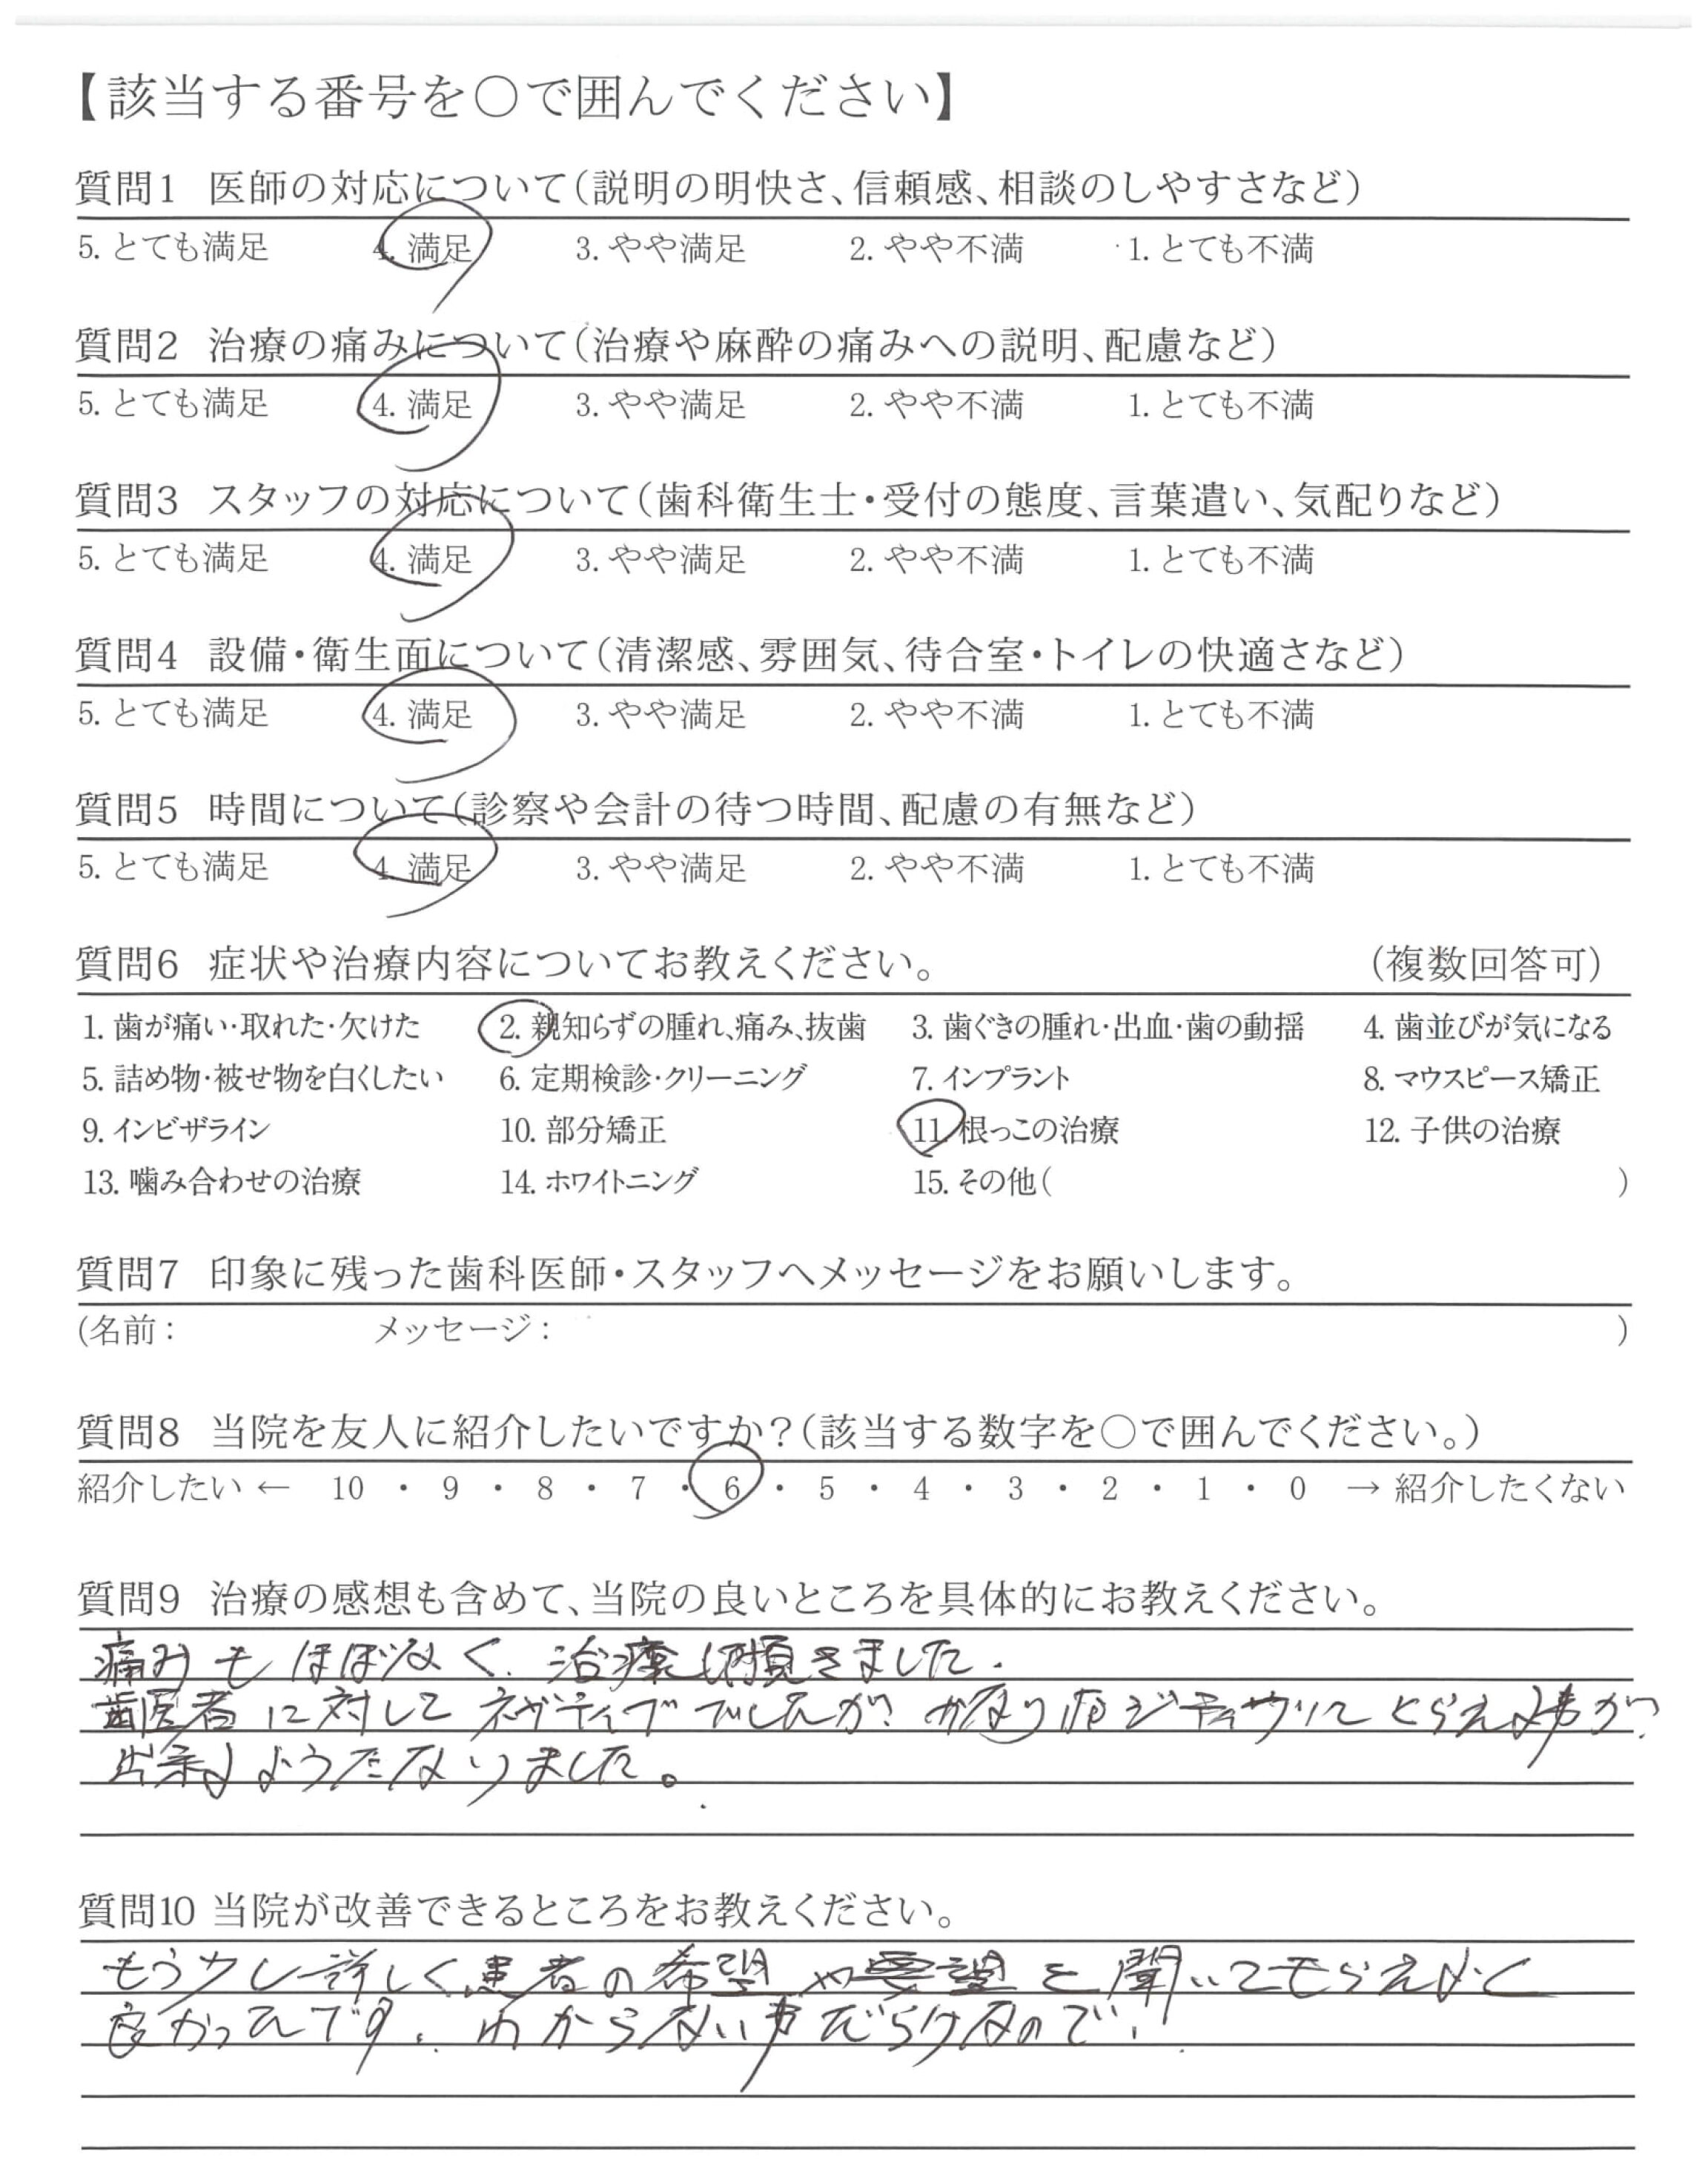 【該当する番号を○で囲んでください】
質問1 医師の対応について（説明の明快さ、信頼感、相談のしやすさなど）
5. とても満足 4. 満足 3. やや満足 2. やや不満 1. とても不満
質問2 治療の痛みについて（治療や麻酔の痛みへの説明、配慮など）
5. とても満足 4. 満足 3. やや満足 2. やや不満 1. とても不満
質問3 スタッフの対応について（歯科衛生士・受付の態度、言葉遣い、気配りなど）
5. とても満足 4. 満足 3. やや満足 2. やや不満 1. とても不満
質問4 設備・衛生面について（清潔感、雰囲気、待合室・トイレの快適さなど）
5. とても満足 4. 満足 3. やや満足 2. やや不満 1. とても不満
質問5 時間について（診察や会計の待つ時間、配慮の有無など）
5. とても満足 4. 満足 3. やや満足 2. やや不満 1. とても不満
質問6 症状や治療内容についてお教えください。 （複数回答可）
1. 歯が痛い・取れた・欠けた 2. 親知らずの腫れ、痛み、抜歯 3. 歯ぐきの腫れ・出血・歯の動揺 4. 歯並びが気になる
5. 詰め物・被せ物を白くしたい 6. 定期検診・クリーニング 7. インプラント 8. マウスピース矯正
9. インビザライン 10. 部分矯正 11. 根っこの治療 12. 子供の治療
13. 噛み合わせの治療 14. ホワイトニング 15. その他（ ）
質問7 印象に残った歯科医師・スタッフへメッセージをお願いします。
（名前： メッセージ： ）
質問8 当院を友人に紹介したいですか？（該当する数字を○で囲んでください。）
紹介したい ← 10 ・ 9 ・ 8 ・ 7 ・ 6 ・ 5 ・ 4 ・ 3 ・ 2 ・ 1 ・ 0 → 紹介したくない
質問9 治療の感想も含めて、当院の良いところを具体的にお教えください。
痛みもほぼなく、治療頂きました.
歯医者に対してネガティブでしたが、かなりポジティブにとらえる事が
出来るようになりました。
質問10 当院が改善できるところをお教えください。
もう少し詳しく患者の希望や要望を聞いてもらえると
良かったです. わからない事だらけなので!